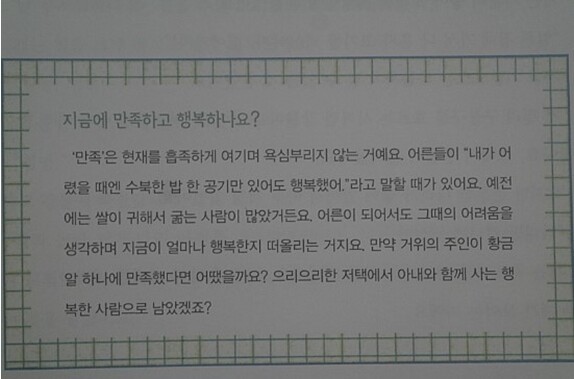 지금에 만족하고 행복하나요?
'만족'은 현재를 흡족하게 여기며 욕심부리지 않는 거예요. 어른들이 "내가 어
렸을 때엔 수북한 밥 한 공기만 있어도 행복했어."라고 말할 때가 있어요. 예전
에는 쌀이 귀해서 굶는 사람이 많았거든요. 어른이 되어서도 그때의 어려움을
생각하며 지금이 얼마나 행복한지 떠올리는 거지요. 만약 거위의 주인이 황금
알 하나에 만족했다면 어땠을까요? 으리으리한 저택에서 아내와 함께 사는 행
복한 사람으로 남았겠죠?